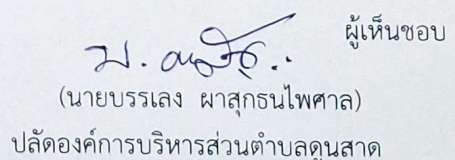 ผู้เห็นชอบ
(นายบรรเลง ผาสุกธนไพศาล)
ปลัดองค์การบริหารส่วนตำบลดูนสาด